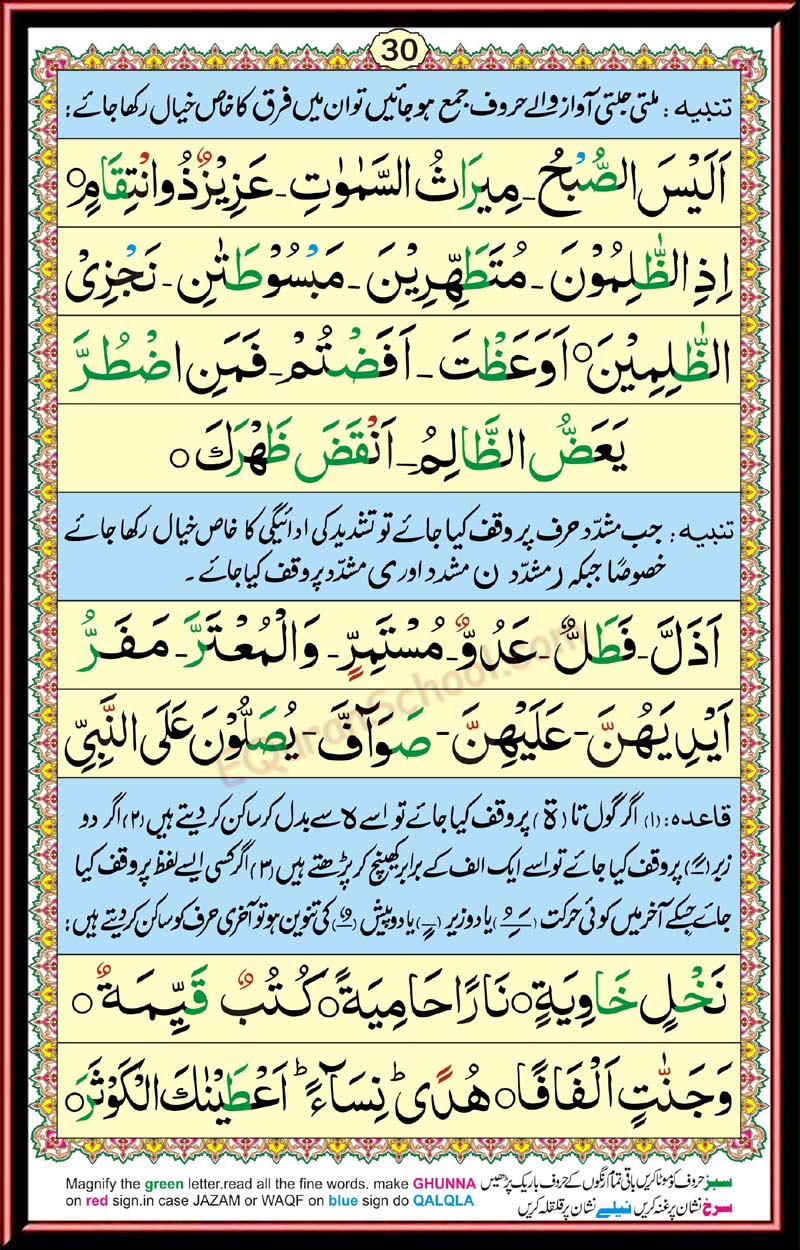 30
تنبیہ: ملتی جلتی آواز والے حروف جمع ہو جائیں تو ان میں فرق کا خاص خیال رکھا جائے:
اَلَيْسَ الصُّبْحُ۔ مِيرَاثُ السَّمٰوٰتِ۔ عَزِيْزٌ ذُوانْتِقَامٍ○
اِذِ الظّٰلِمُوْنَ۔ مُتَطَهِّرِيْنَ۔ مَبْسُوْطَتٰنِ۔ نَجْزِى
الظّٰلِمِيْنَ○ اَوَعَظْتَ۔ اَفَضْتُمْ۔ فَمَنِ اضْطُرَّ
يَعَضُّ الظَّالِمُ۔ اَنْقَضَ ظَهْرَكَ○
تنبیہ: جب مشدّد حرف پر وقف کیا جائے تو تشدید کی ادائیگی کا خاص خیال رکھا جائے
خصوصًا جبکہ ر مشدّد ن مشدد اور ی مشدّد پر وقف کیا جائے۔
اَذَلَّ۔ فَطَلٌّ۔ عَدُوٌّ۔ مُسْتَمِرٍّ۔ وَالْمُعْتَرَّ۔ مَفَرُّ
اَيْدِيَهُنَّ۔ عَلَيْهِنَّ۔ صَوَآفَّ۔ يُصَلُّوْنَ عَلَى النَّبِيِّ
قاعدہ: (۱) اگر گول تا (ة) پر وقف کیا جائے تو اسے ہ سے بدل کر ساکن کر دیتے ہیں (۲) اگر دو
زبر (ً) پر وقف کیا جائے تو اسے ایک الف کے برابر کھینچ کر پڑھتے ہیں (۳) اگر کسی ایسے لفظ پر وقف کیا
جائے جسکے آخر میں کوئی حرکت (َ ِ ُ) یا دو زیر (ٍ) یا دو پیش (ٌ) کی تنوین ہو تو آخری حرف کو ساکن کر دیتے ہیں:
نَخْلٍ خَاوِيَةٍ○ نَارًا حَامِيَةً○ كُتُبٌ قَيِّمَةٌ○
وَجَنّٰتٍ اَلْفَافًا○ هُدًى ط نِسَآءً ط اَعْطَيْنٰكَ الْكَوْثَرَ○
EQuranSchool.com
Magnify the green letter.read all the fine words. make GHUNNA
on red sign.in case JAZAM or WAQF on blue sign do QALQLA
سبز حروف کو موٹا کریں باقی تمام رنگوں کے حروف باریک پڑھیں
سرخ نشان پر غنہ کریں نیلے نشان پر قلقلہ کریں